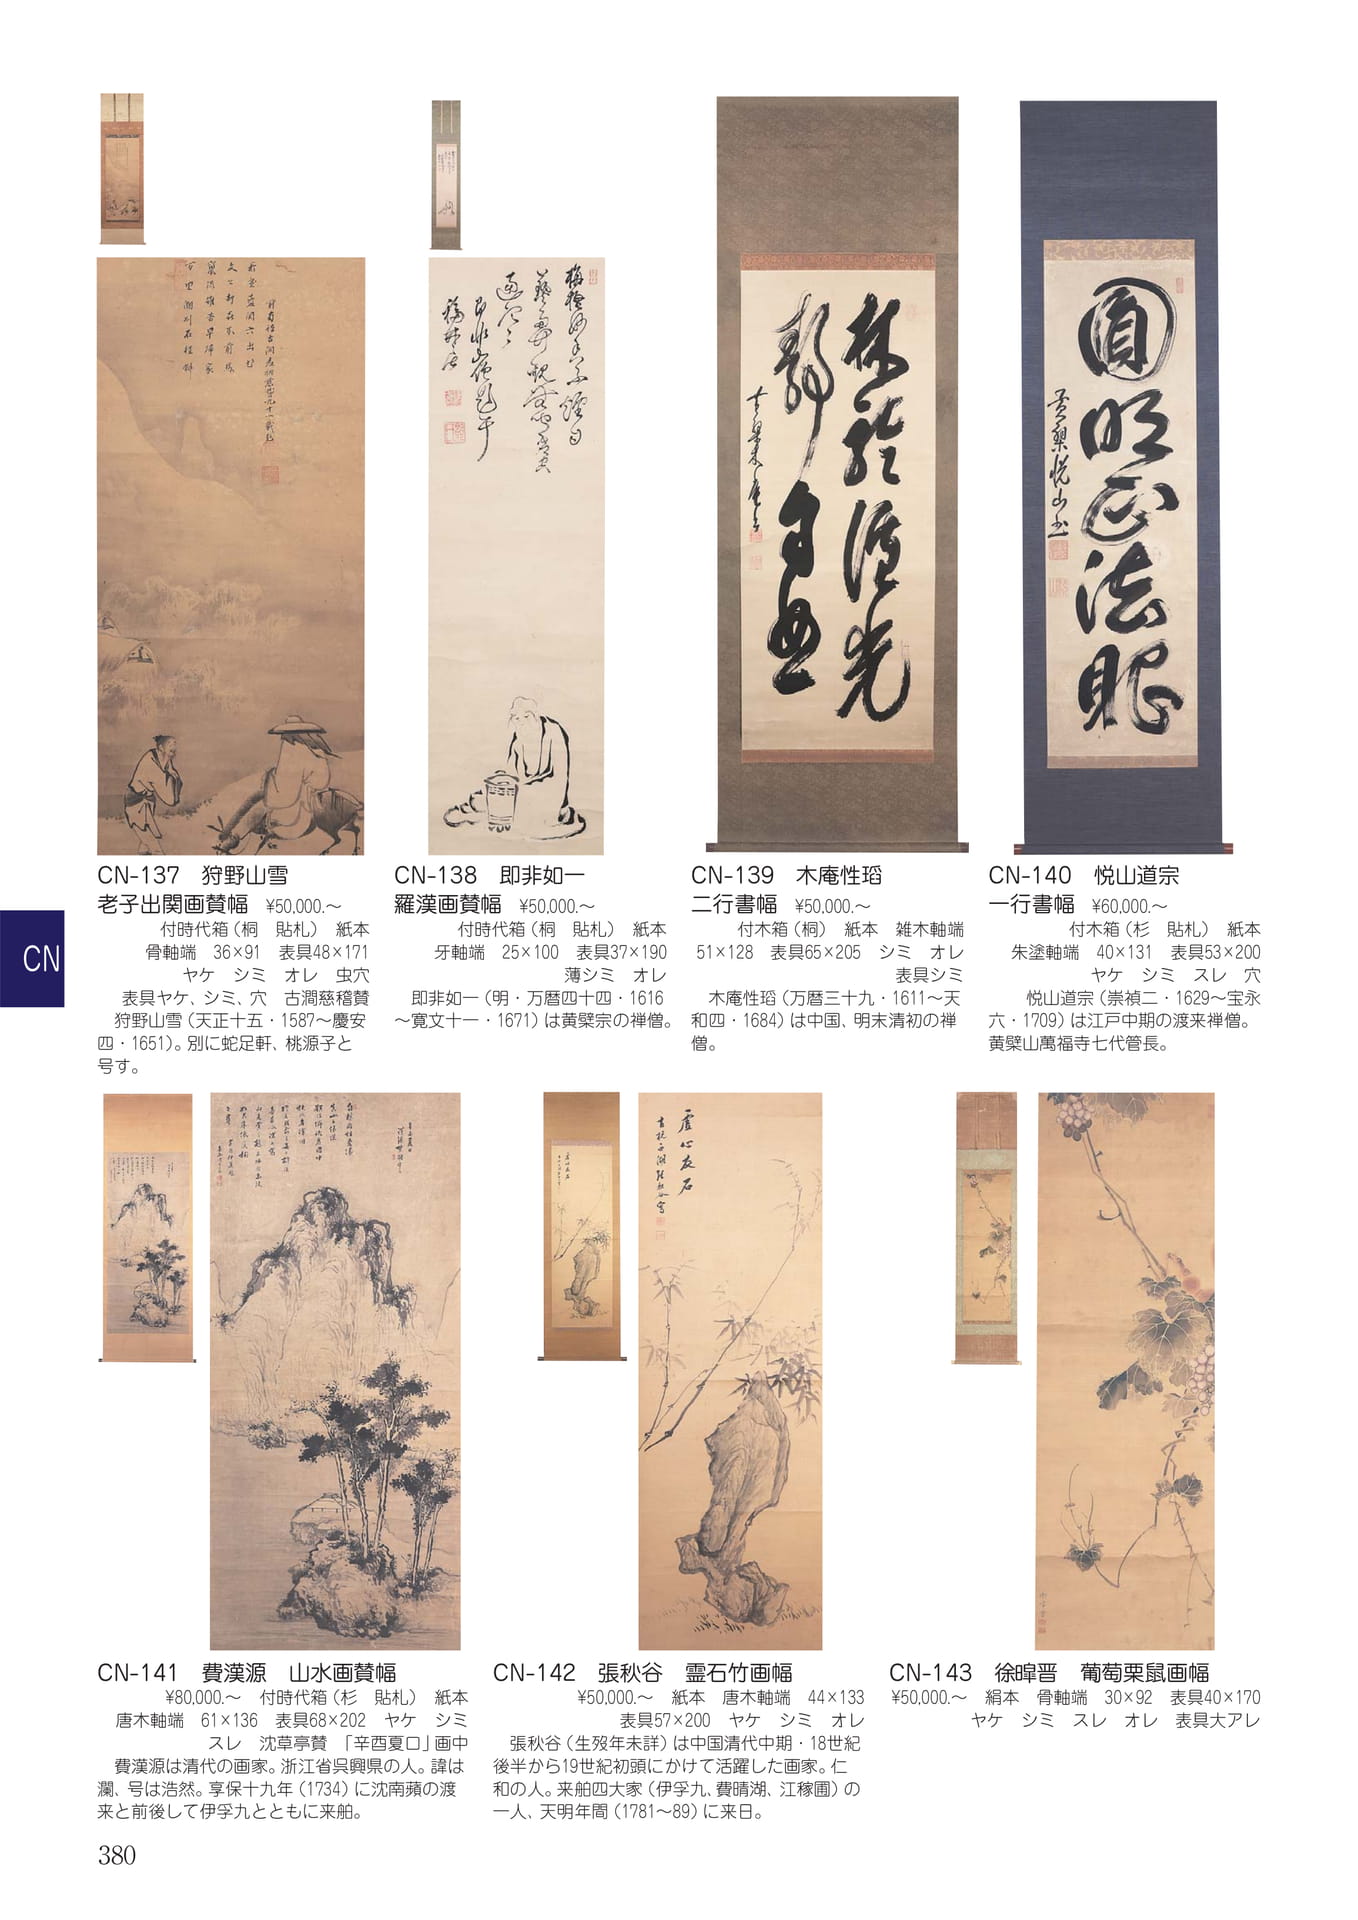 圓明正法眼
黄檗悦山書
虚心友石
CN-137　狩野山雪
老子出関画賛幅　¥50,000.～
付時代箱（桐　貼札）　紙本
骨軸端　36×91　表具48×171
ヤケ　シミ　オレ　虫穴
表具ヤケ、シミ、穴　古澗慈稽賛
狩野山雪（天正十五・1587～慶安
四・1651）。別に蛇足軒、桃源子と
号す。
CN-138　即非如一
羅漢画賛幅　¥50,000.～
付時代箱（桐　貼札）　紙本
牙軸端　25×100　表具37×190
薄シミ　オレ
即非如一（明・万暦四十四・1616
～寛文十一・1671）は黄檗宗の禅僧。
CN-139　木庵性瑫
二行書幅　¥50,000.～
付木箱（桐）　紙本　雑木軸端
51×128　表具65×205　シミ　オレ
表具シミ
木庵性瑫（万暦三十九・1611～天
和四・1684）は中国、明末清初の禅
僧。
CN-140　悦山道宗
一行書幅　¥60,000.～
付木箱（杉　貼札）　紙本
朱塗軸端　40×131　表具53×200
ヤケ　シミ　スレ　穴
悦山道宗（崇禎二・1629～宝永
六・1709）は江戸中期の渡来禅僧。
黄檗山萬福寺七代管長。
CN
CN-141　費漢源　山水画賛幅
¥80,000.～　付時代箱（杉　貼札）　紙本
唐木軸端　61×136　表具68×202　ヤケ　シミ
スレ　沈草亭賛　「辛酉夏口」画中
費漢源は清代の画家。浙江省呉興県の人。諱は
瀾、号は浩然。享保十九年（1734）に沈南蘋の渡
来と前後して伊孚九とともに来舶。
CN-142　張秋谷　霊石竹画幅
¥50,000.～　紙本　唐木軸端　44×133
表具57×200　ヤケ　シミ　オレ
張秋谷（生歿年未詳）は中国清代中期・18世紀
後半から19世紀初頭にかけて活躍した画家。仁
和の人。来舶四大家（伊孚九、費晴湖、江稼圃）の
一人、天明年間（1781～89）に来日。
CN-143　徐暐晋　葡萄栗鼠画幅
¥50,000.～　絹本　骨軸端　30×92　表具40×170
ヤケ　シミ　スレ　オレ　表具大アレ
380